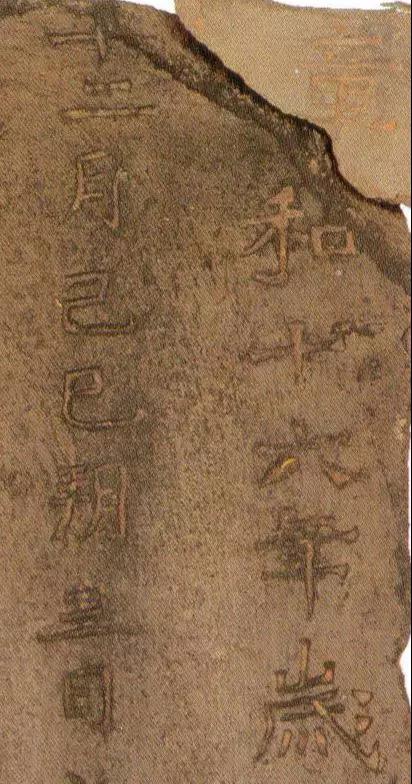 和十六年歲
十二月己巳朔日